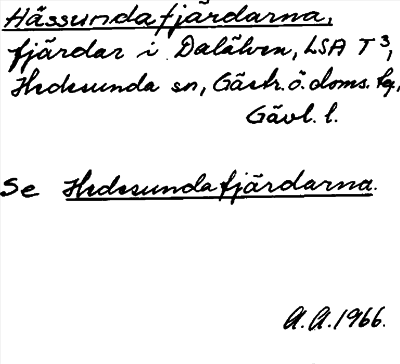 Hässundafjärdarna,
fjärdar i Dalälven, LSA T3,
Hedesunda sn, Gästr. ö. doms. fg,
Gävl. l.
Se Hedesundafjärdarna.
A.A. 1966.